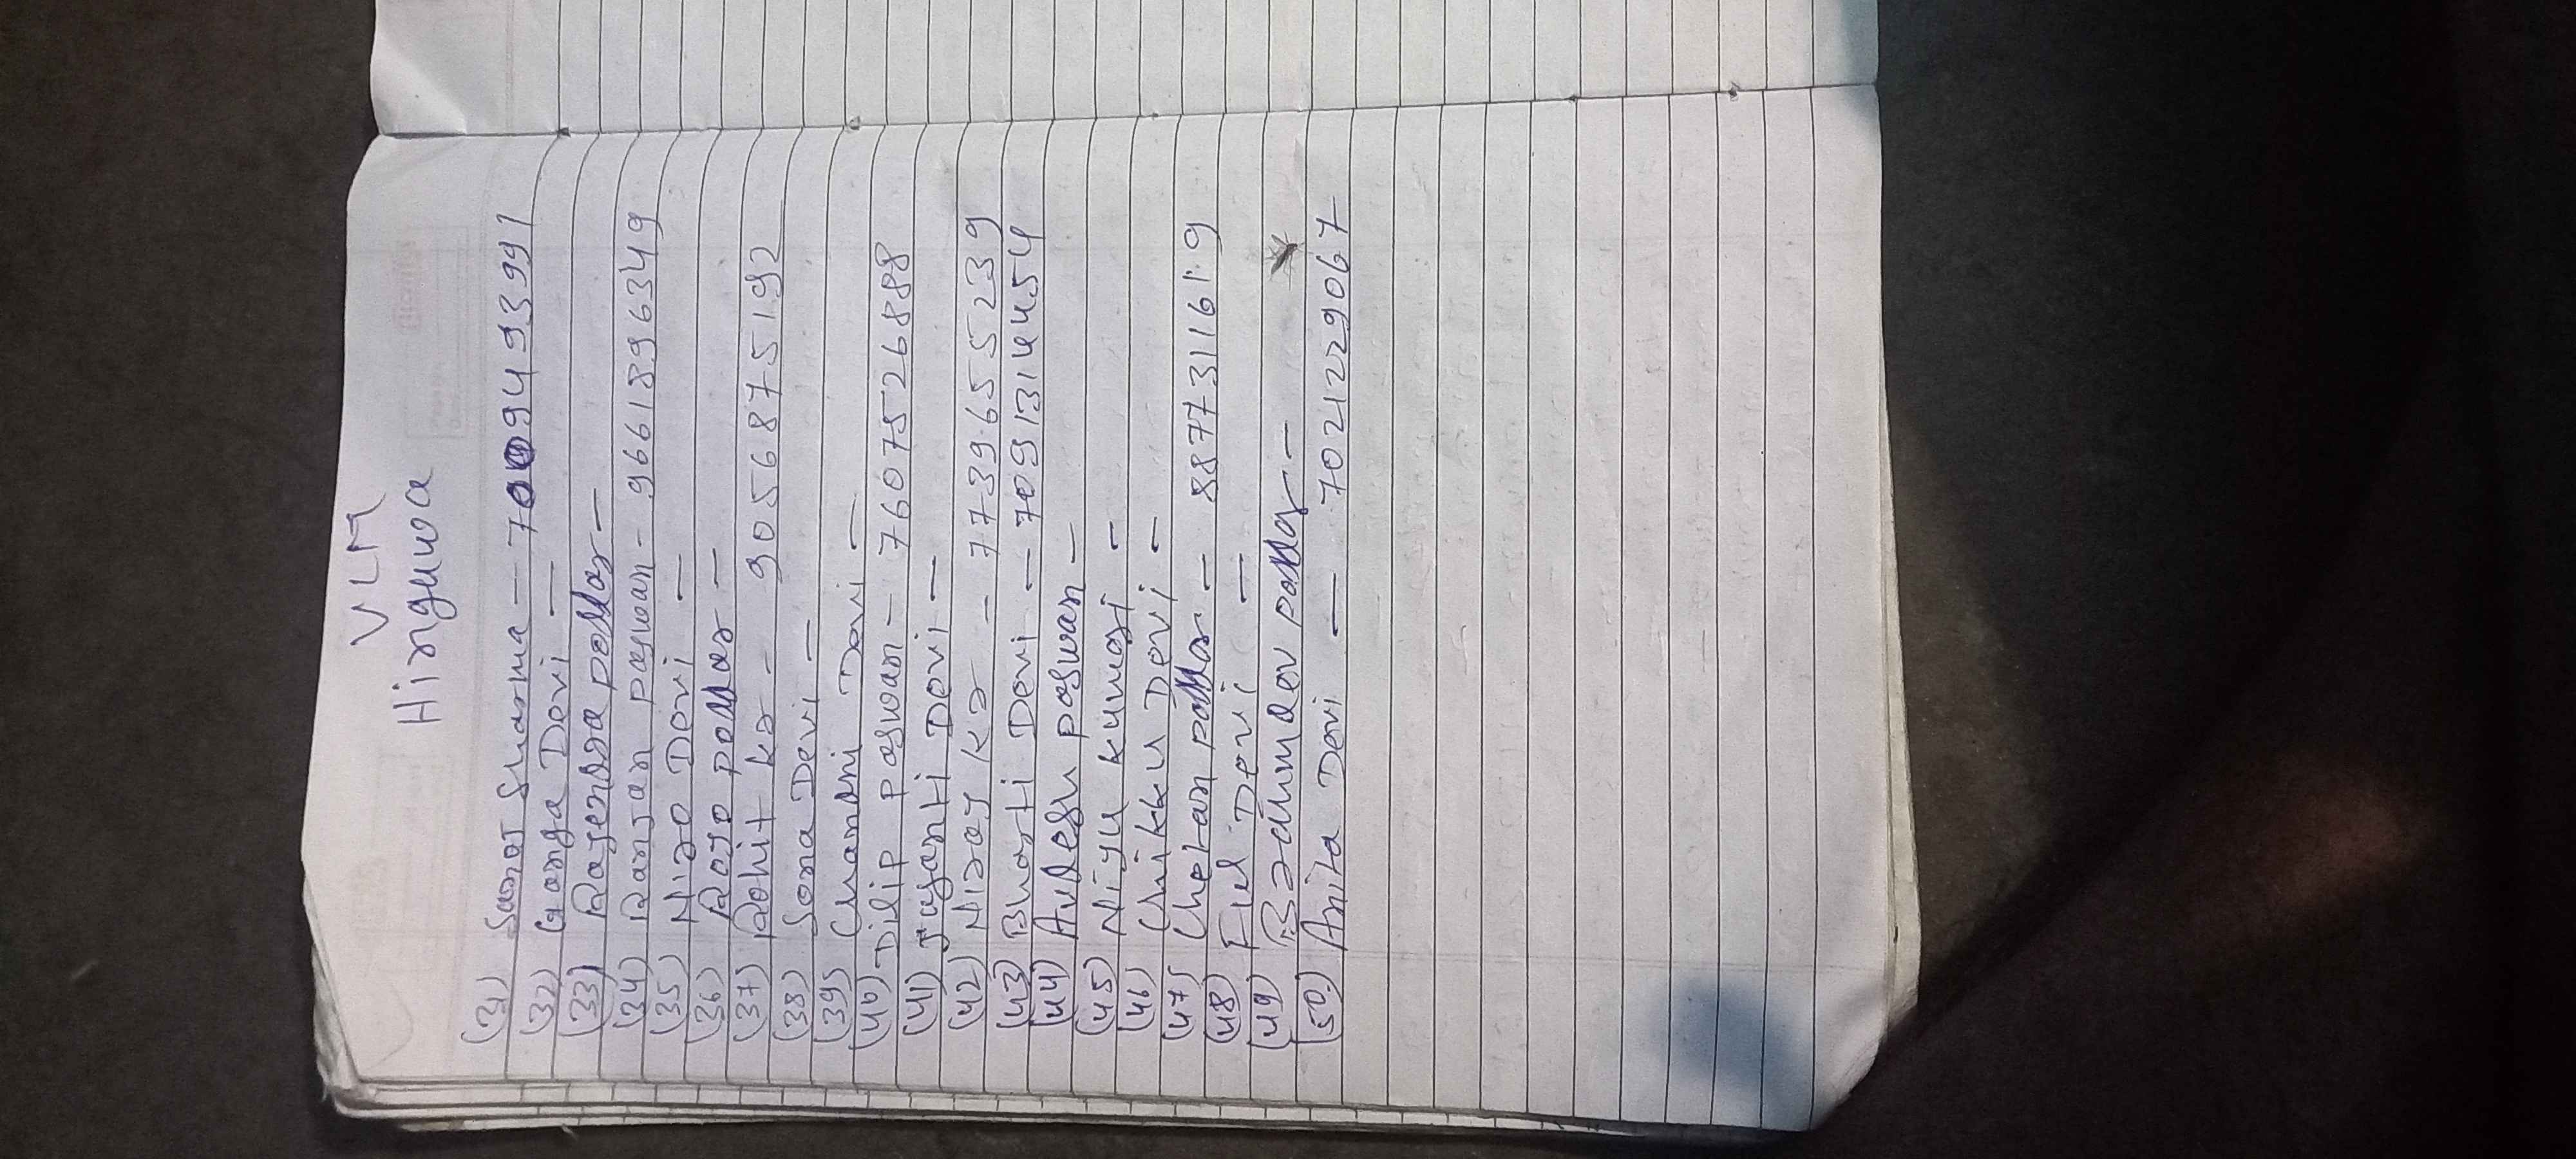 VLM
Hinguwa
(31) Sanoj Sharma - 7009493991
(32) Ganga Devi -
(33) Rajendra poddar -
(34) Ranjan paswan - 9661896349
(35) Niro Devi -
(36) Rojo poddar -
(37) Rohit kr - 9056875192
(38) Sona Devi -
(39) Chandni Devi -
(40) Dilip paswan - 7607526888
(41) Jayanti Devi -
(42) Niraj kr - 7739655239
(43) Bharti Devi - 7091314454
(44) Avdesh paswan -
(45) Niyu kumari -
(46) Chikku Devi -
(47) Chetan poddar - 8877311619
(48) Ful Devi -
(49) Bramhdev poddar -
(50) Anita Devi - 7021229067